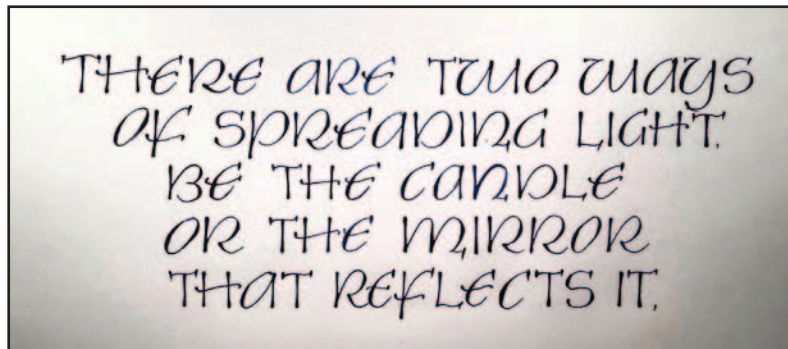 THERE ARE TWO WAYS
OF SPREADING LIGHT.
BE THE CANDLE
OR THE MIRROR
THAT REFLECTS IT.